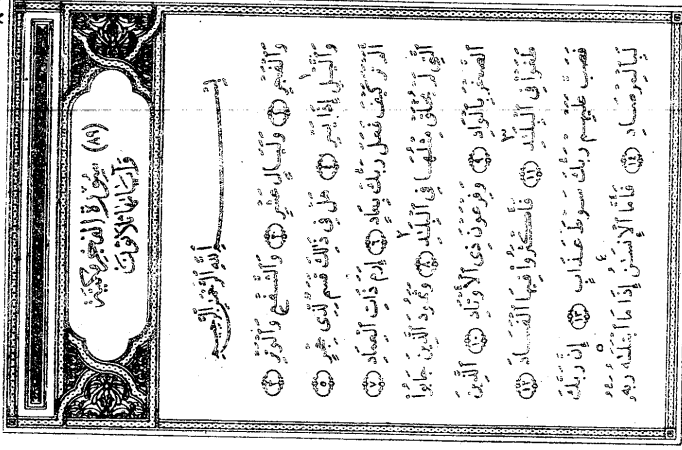 (٨٩) سُورَةُ الفَجْرِ مَكِّيَّة
وَآيَاتُهَا ثَلَاثُونَ
بِسْمِ ٱللَّهِ ٱلرَّحْمَٰنِ ٱلرَّحِيمِ
وَٱلْفَجْرِ ۝١ وَلَيَالٍ عَشْرٍ ۝٢ وَٱلشَّفْعِ وَٱلْوَتْرِ ۝٣
وَٱلَّيْلِ إِذَا يَسْرِ ۝٤ هَلْ فِى ذَٰلِكَ قَسَمٌ لِّذِى حِجْرٍ ۝٥
أَلَمْ تَرَ كَيْفَ فَعَلَ رَبُّكَ بِعَادٍ ۝٦ إِرَمَ ذَاتِ ٱلْعِمَادِ ۝٧
ٱلَّتِى لَمْ يُخْلَقْ مِثْلُهَا فِى ٱلْبِلَٰدِ ۝٨ وَثَمُودَ ٱلَّذِينَ جَابُوا۟
ٱلصَّخْرَ بِٱلْوَادِ ۝٩ وَفِرْعَوْنَ ذِى ٱلْأَوْتَادِ ۝١٠ ٱلَّذِينَ
طَغَوْا۟ فِى ٱلْبِلَٰدِ ۝١١ فَأَكْثَرُوا۟ فِيهَا ٱلْفَسَادَ ۝١٢
فَصَبَّ عَلَيْهِمْ رَبُّكَ سَوْطَ عَذَابٍ ۝١٣ إِنَّ رَبَّكَ
لَبِٱلْمِرْصَادِ ۝١٤ فَأَمَّا ٱلْإِنسَٰنُ إِذَا مَا ٱبْتَلَىٰهُ رَبُّهُۥ